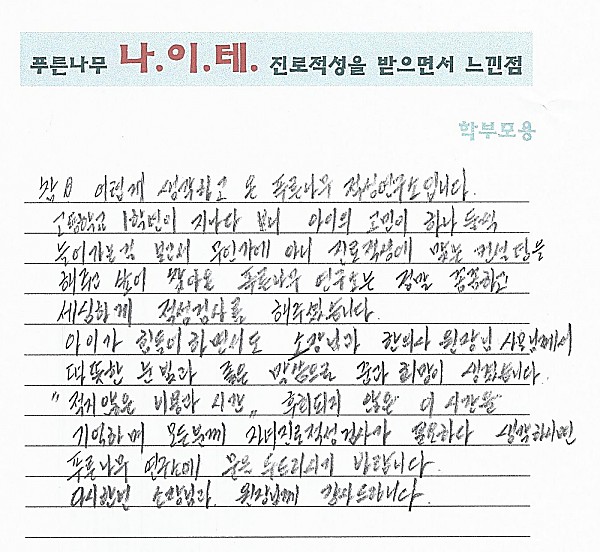 푸른나무 나.이.테. 진로적성을 받으면서 느낀점
학부모용
참 어렵게 생각하고 온 푸른나무 적성연구소입니다.
고등학교 1학년이 지나다 보니 아이의 고민이 하나 둘씩
늘어가는걸 보면서 무언가에 아니 진로적성에 맞는 컨설팅을
해주고 싶어 찾아온 푸른나무 연구소는 정말 꼼꼼하고
세심하게 적성검사를 해주셨습니다.
아이가 힘들어 하면서도 소장님과 한의사 원장님 사모님께서
따뜻한 눈빛과 좋은 말씀으로 꿈과 희망이 생겼습니다.
"적지않은 비용과 시간" 후회되지 않은 이 시간을
기억하며 모든분께 자녀진로적성검사가 필요하다 생각하시면
푸른나무 연구소에 문을 두드리시기 바랍니다.
다시한번 소장님과 원장님께 감사드립니다.